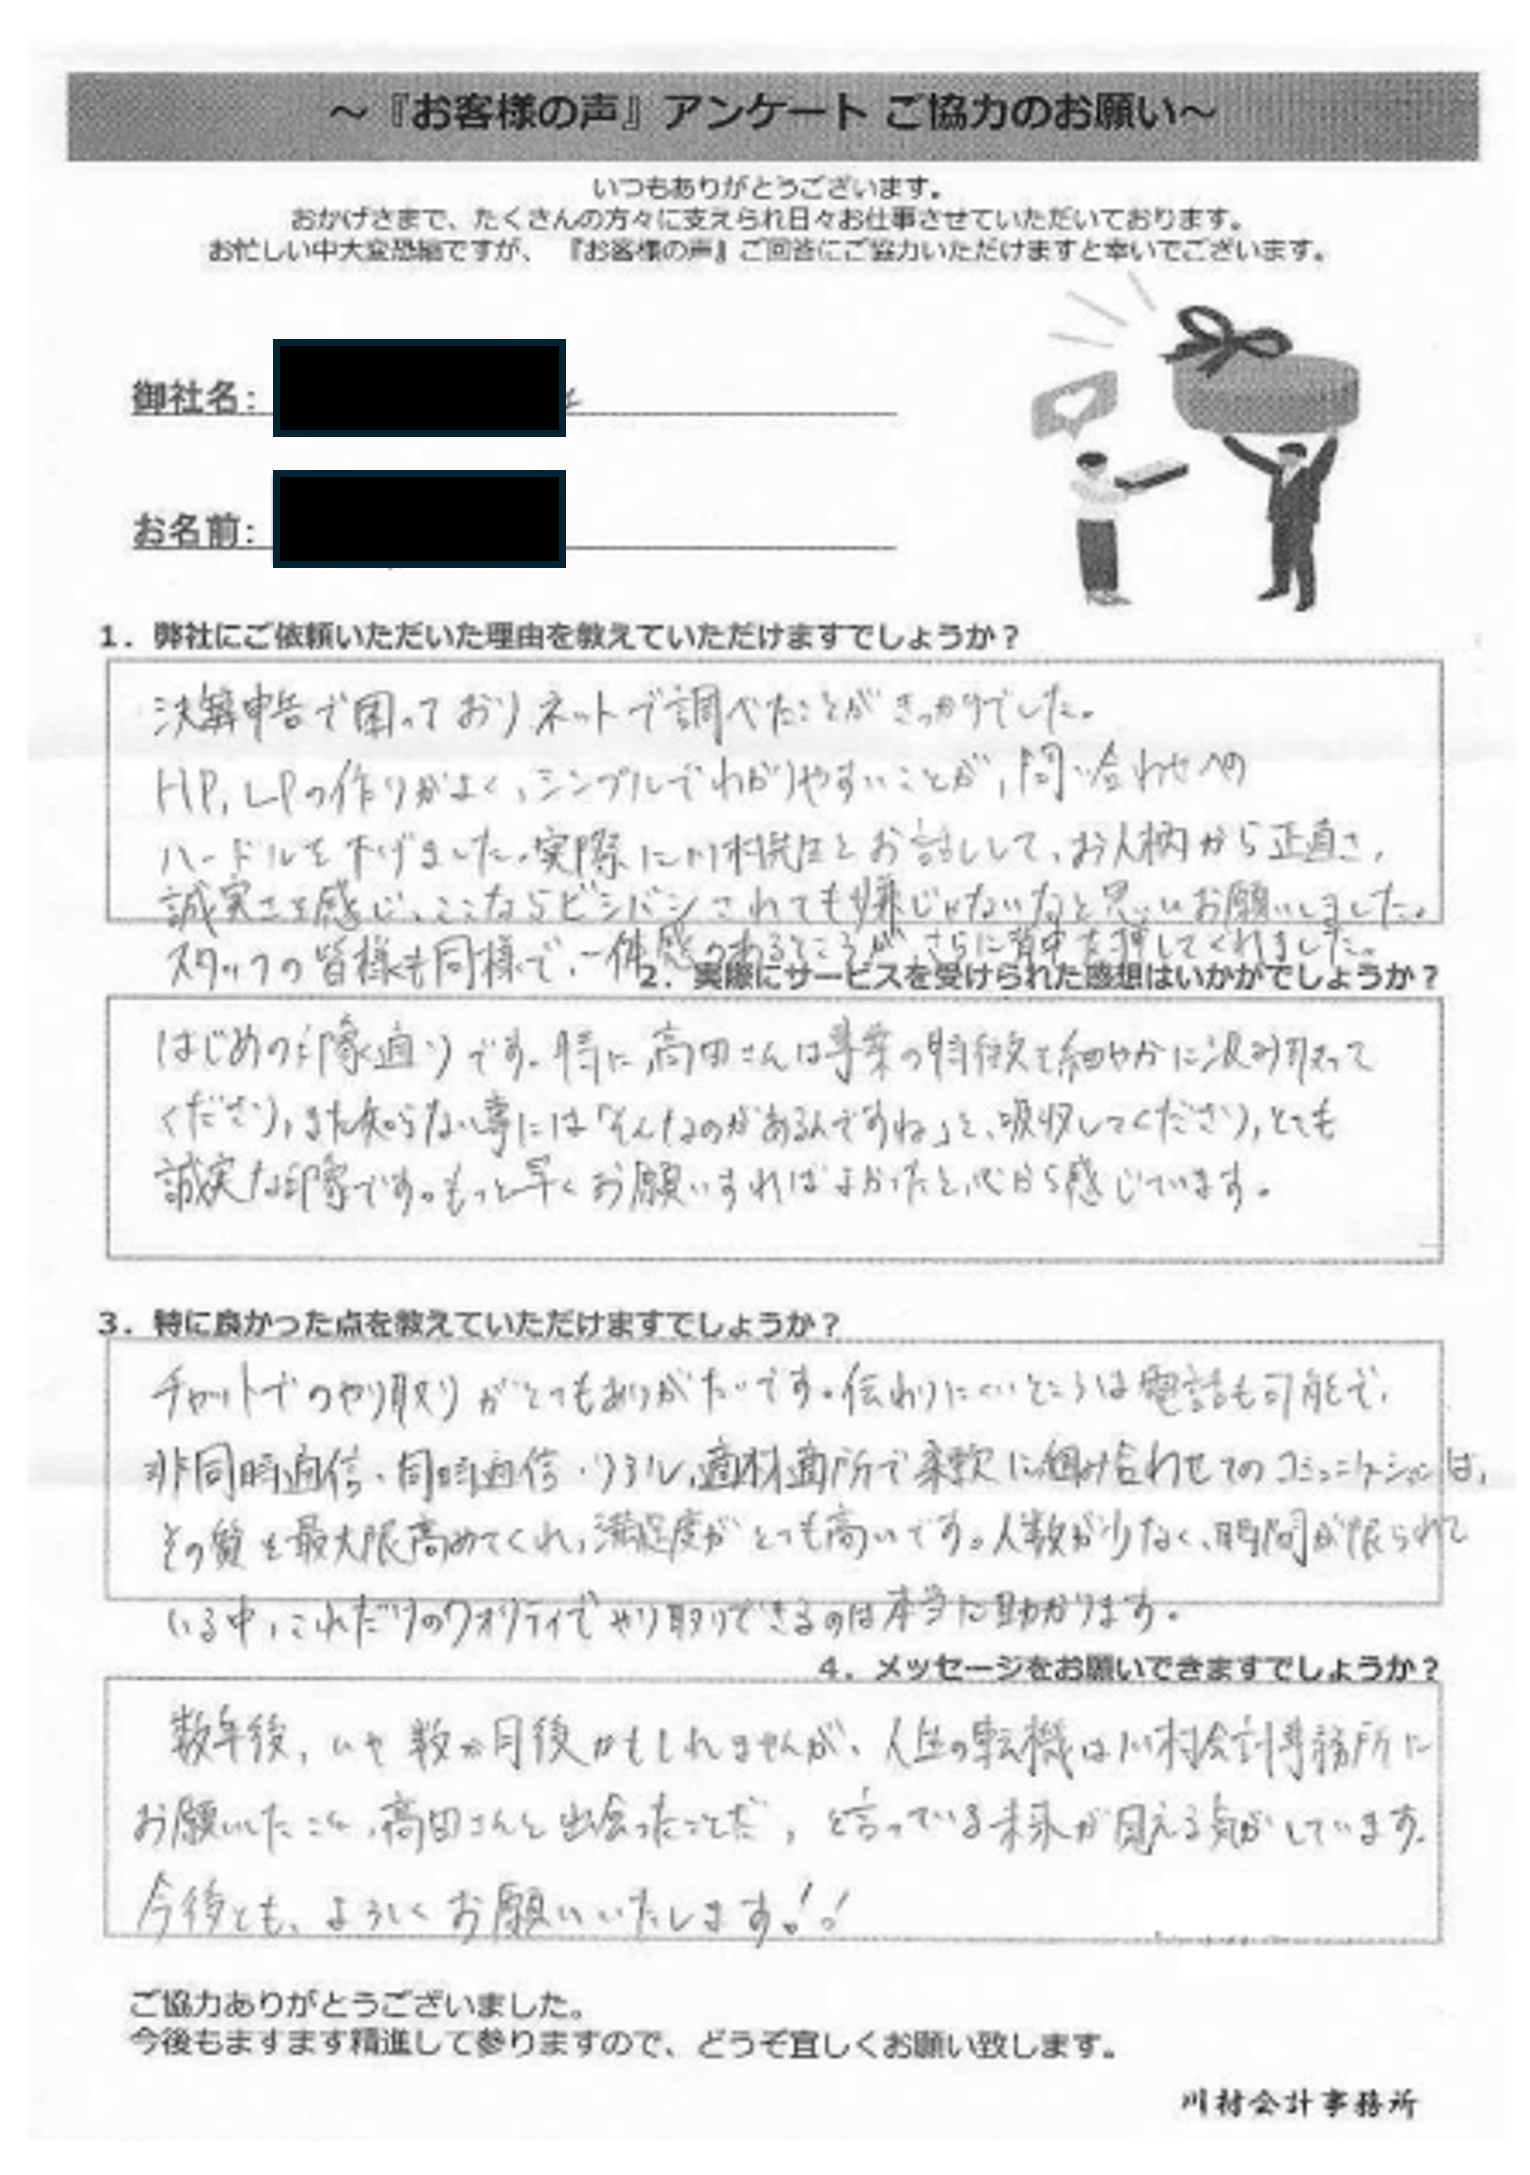 ～『お客様の声』アンケート ご協力のお願い～
いつもありがとうございます。
おかげさまで、たくさんの方々に支えられ日々お仕事させていただいております。
お忙しい中大変恐縮ですが、『お客様の声』ご回答にご協力いただけますと幸いでございます。
御社名：
お名前：
1．弊社にご依頼いただいた理由を教えていただけますでしょうか？
決算申告で困っておりネットで調べたことがきっかけでした。
HP, LPの作りがよく、シンプルでわかりやすいことが、問い合わせへの
ハードルを下げました。実際に川村先生とお話しして、お人柄から正直さ、
誠実さを感じ、ここならビシバシされても嫌じゃないなと思いお願いしました。
スタッフの皆様も同様で、一体感のあるところが、さらに背中を押してくれました。
2．実際にサービスを受けられた感想はいかがでしょうか？
はじめの印象通りです。特に、高田さんは事業の特徴を細やかに汲み取って
くださり、また知らない事には「そんなのがあるんですね」と、吸収してくださり、とても
誠実な印象です。もっと早くお願いすればよかったと心から感じています。
3．特に良かった点を教えていただけますでしょうか？
チャットでのやり取りがとてもありがたいです。伝わりにくいところは電話も可能で、
非同時通信・同時通信・リアル、適材適所で柔軟に組み合わせてのコミュニケーションは、
その質を最大限高めてくれ、満足度がとても高いです。人数が少なく、時間が限られて
いる中、これだけのクオリティでやり取りできるのは本当に助かります。
4．メッセージをお願いできますでしょうか？
数年後、いや数か月後かもしれませんが、人生の転機は川村会計事務所に
お願いしたこと、高田さんと出会ったことだ、と言っている未来が見える気がしています。
今後とも、よろしくお願いいたします！！
ご協力ありがとうございました。
今後もますます精進して参りますので、どうぞ宜しくお願い致します。
川村会計事務所